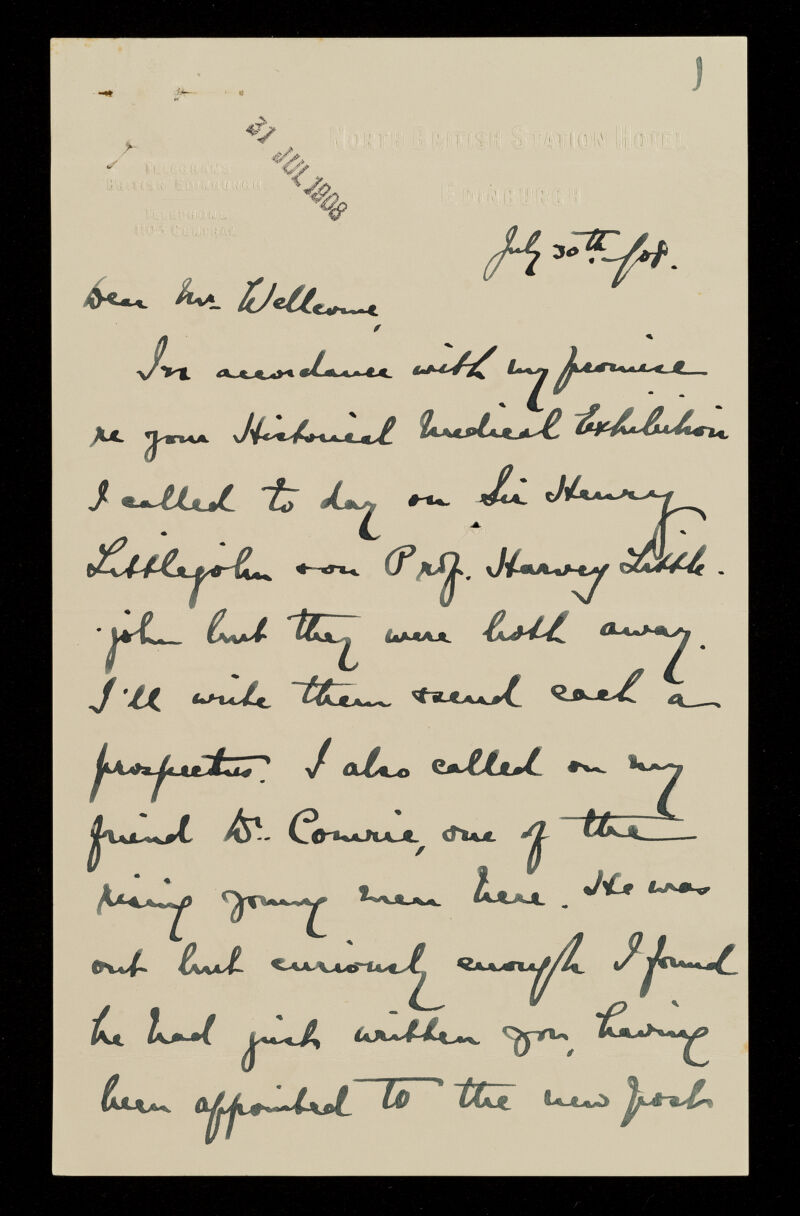 1
NORTH BRITISH STATION HOTEL
EDINBURGH
TELEGRAMS
BRITISH EDINBURGH.
TELEPHONE
1103 CENTRAL
31 JUL 1908
July 30th /08.
Dear Mr Wellcome,
In accordance with my promise
re your Historical Medical Exhibition
I called to day on Sir Henry
Littlejohn & on Prof. Harvey Little-
-john but they were both away.
I'll write them & send each a
prospectus. I also called on my
friend Dr. Comrie, one of the
rising young men here. He was
out but curiously enough I found
he had just written you, having
been appointed to the new post